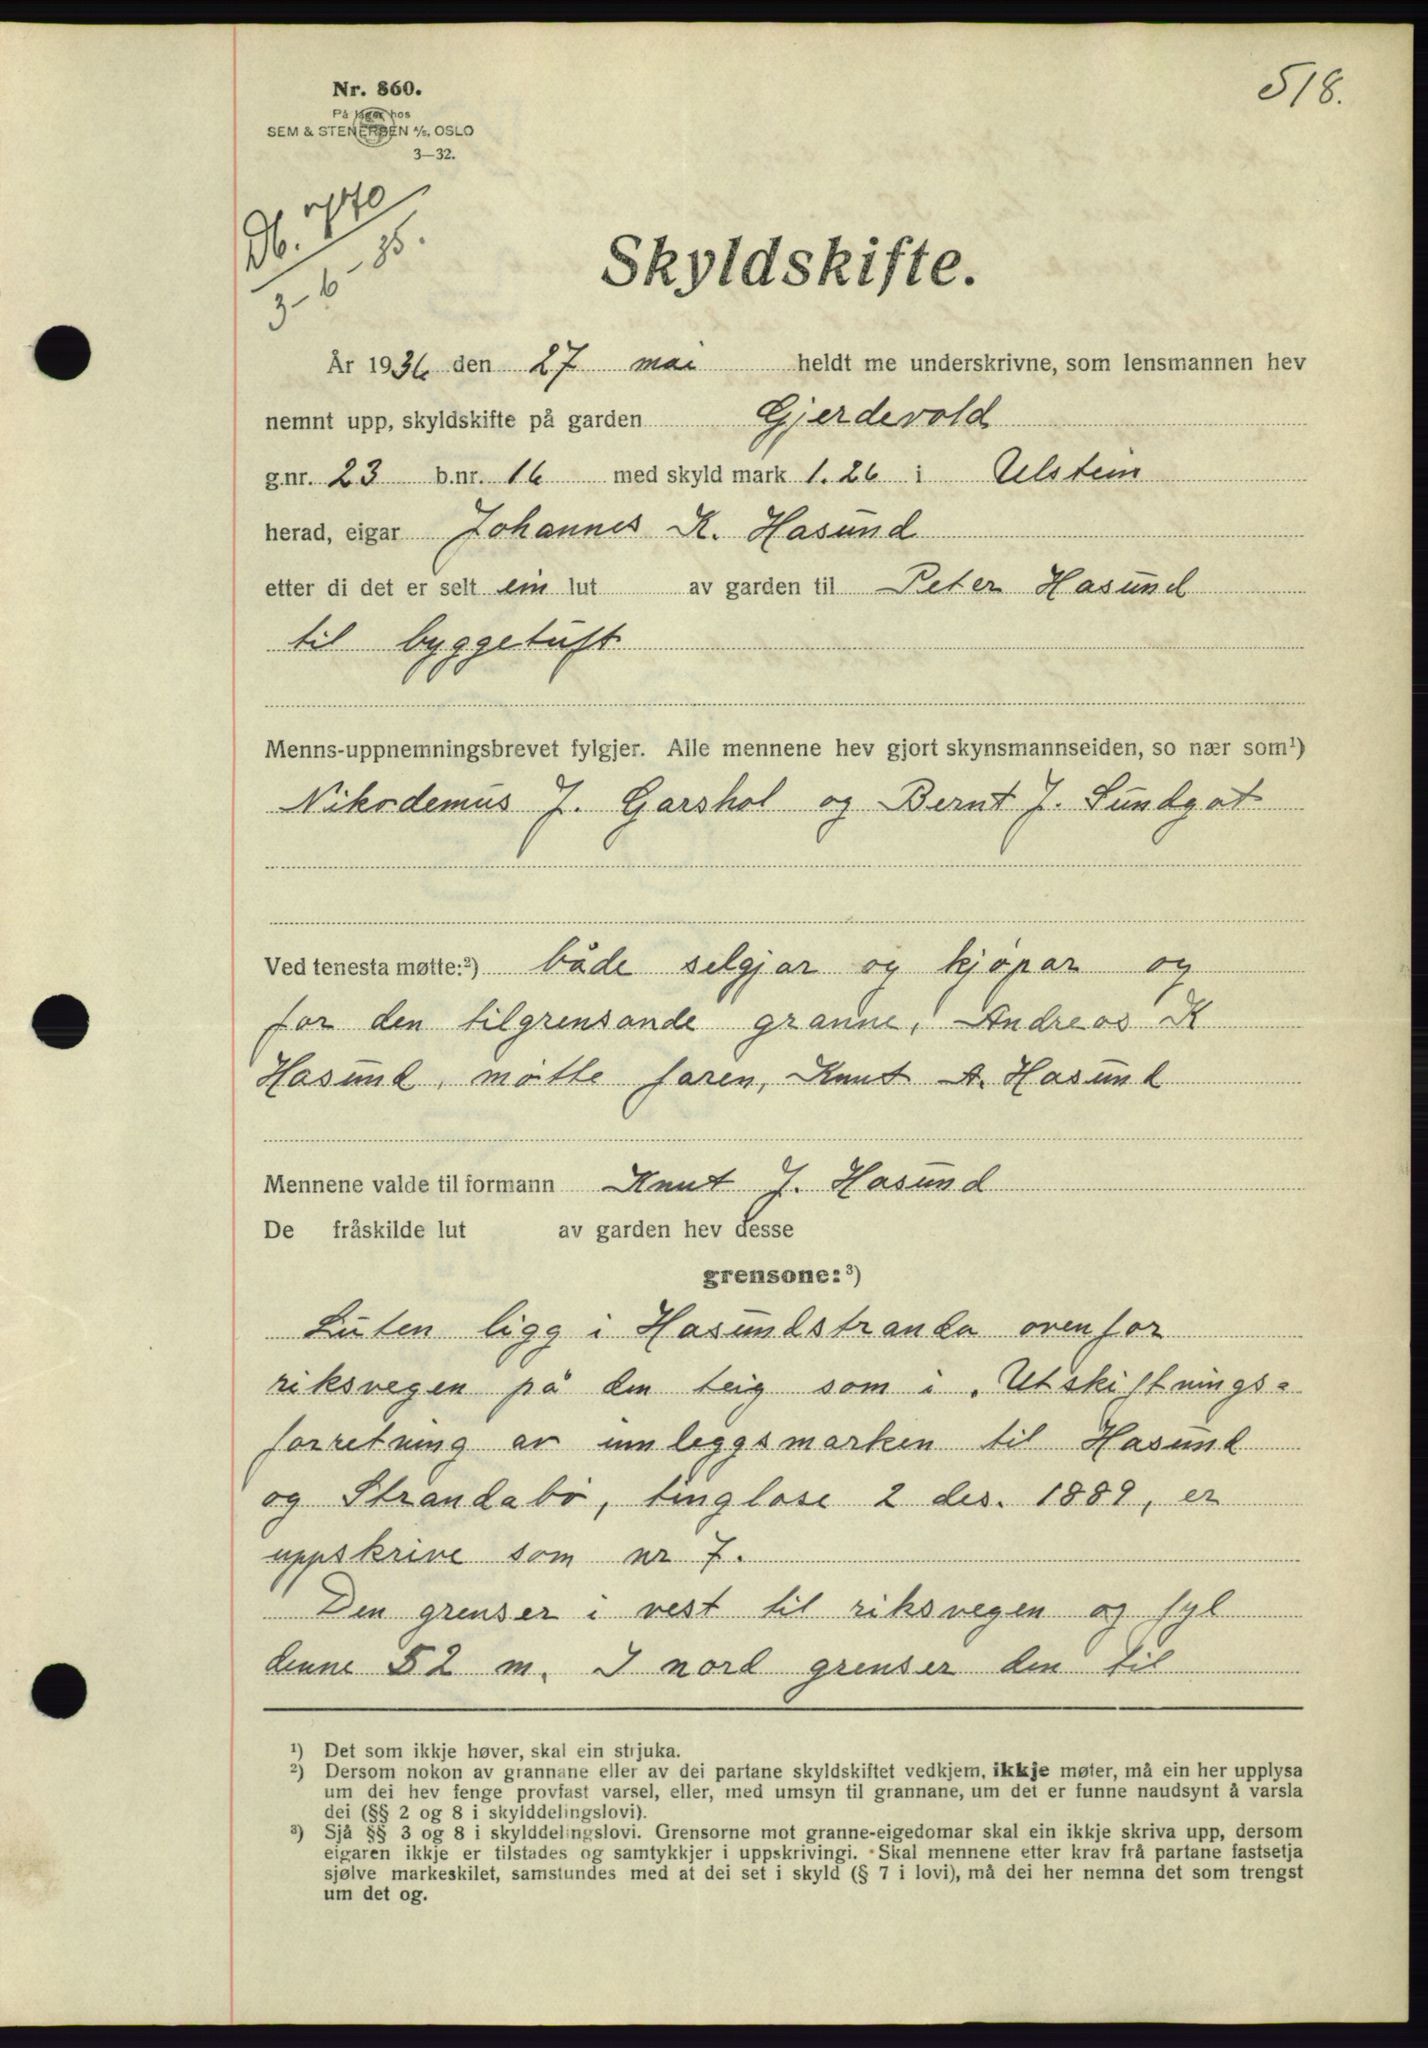 518.
Nr. 860.
På lager hos
SEM & STENERSEN A/S, OSLO
3—32.
Db.
3-6-36.
Skyldskifte.
År 1936 den 27 mai heldt me underskrivne, som lensmannen hev
nemnt upp, skyldskifte på garden Gjerdevold
g.nr. 23 b.nr. 16 med skyld mark 1.26 i Ulstein
herad, eigar Johannes K. Hasund
etter di det er selt ein lut av garden til Peter Hasund
til byggetuft
Menns-uppnemningsbrevet fylgjer. Alle mennene hev gjort skynsmannseiden, so nær som¹)
Nikodemus J. Garshol og Bernt J. Sundgot
Ved tenesta møtte:²) både selgjar og kjöpar og
for den tilgrensande granne, Andreas K
Hasund, mötte faren, Knut A. Hasund
Mennene valde til formann Knut J. Hasund
De fråskilde lut av garden hev desse
grensone:³)
Luten ligg i Hasundstranda ovenfor
riksvegen på den teig som i „Utskiftnings=
forretning av innleggsmarken til Hasund
og Strandabö, tinglose 2 des. 1889, er
uppskrive som nr 7.
Den grenser i vest til riksvegen og fyl
denne 52 m. I nord grenser den til
¹) Det som ikkje høver, skal ein strjuka.
²) Dersom nokon av grannane eller av dei partane skyldskiftet vedkjem, ikkje møter, må ein her upplysa
um dei hev fenge provfast varsel, eller, med umsyn til grannane, um det er funne naudsynt å varsla
dei (§§ 2 og 8 i skylddelingslovi).
³) Sjå §§ 3 og 8 i skylddelingslovi. Grensorne mot granne-eigedomar skal ein ikkje skriva upp, dersom
eigaren ikkje er tilstades og samtykkjer i uppskrivingi. Skal mennene etter krav frå partane fastsetja
sjølve markeskilet, samstundes med at dei set i skyld (§ 7 i lovi), må dei her nemna det som trengst
um det og.